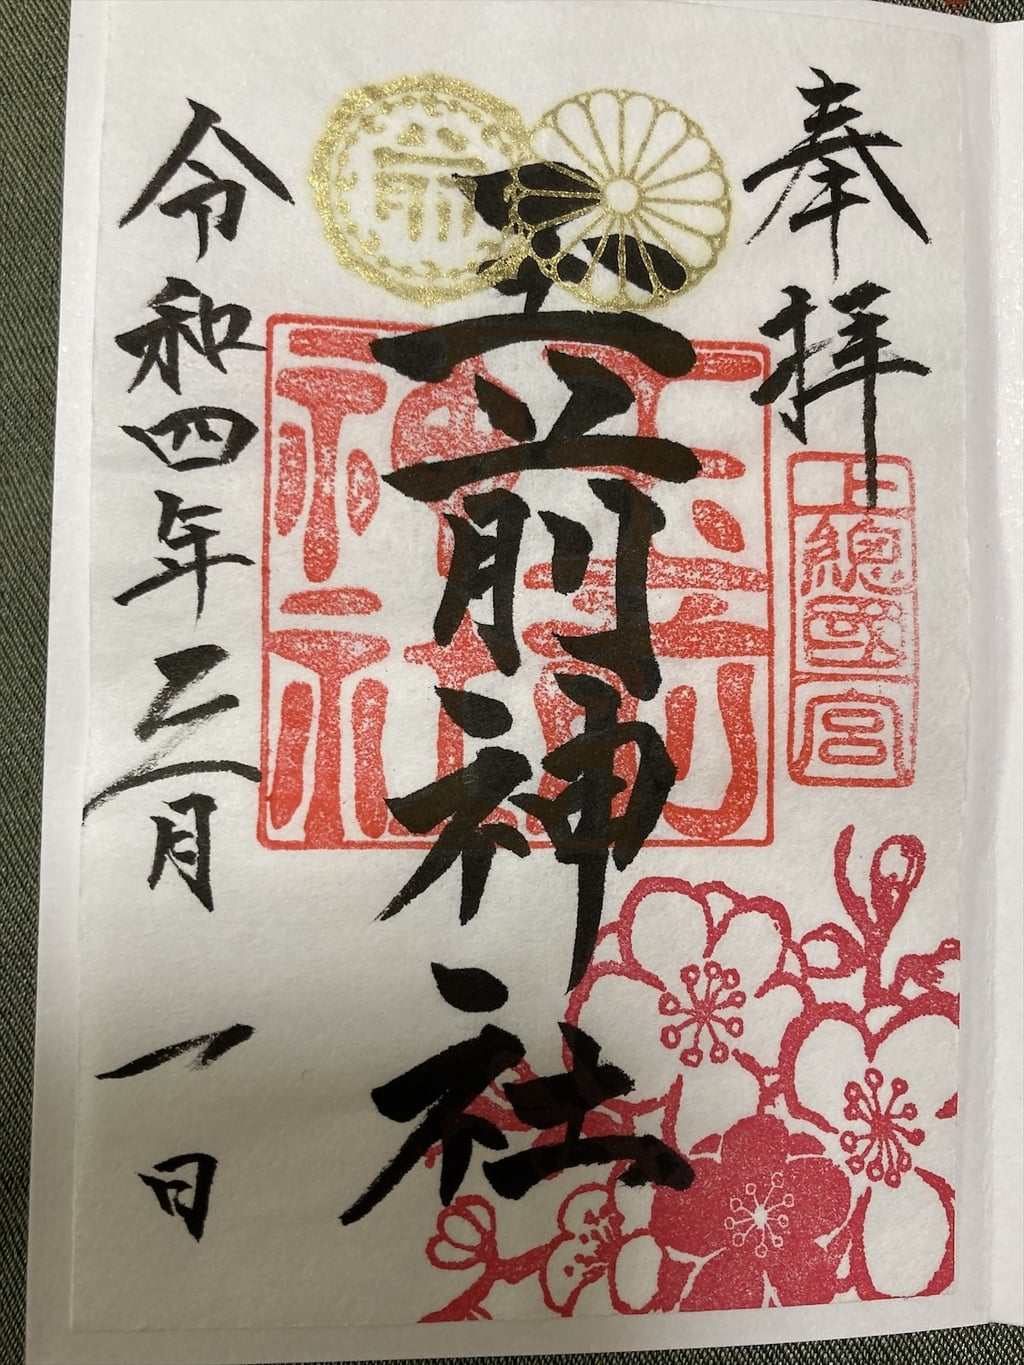 奉拝
上總國一宮
玉前神社
玉前
神社
令和四年三月一日